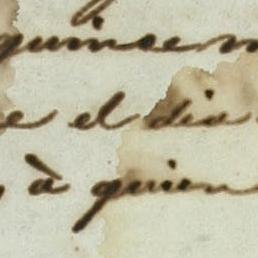 quince
el dia
à quien